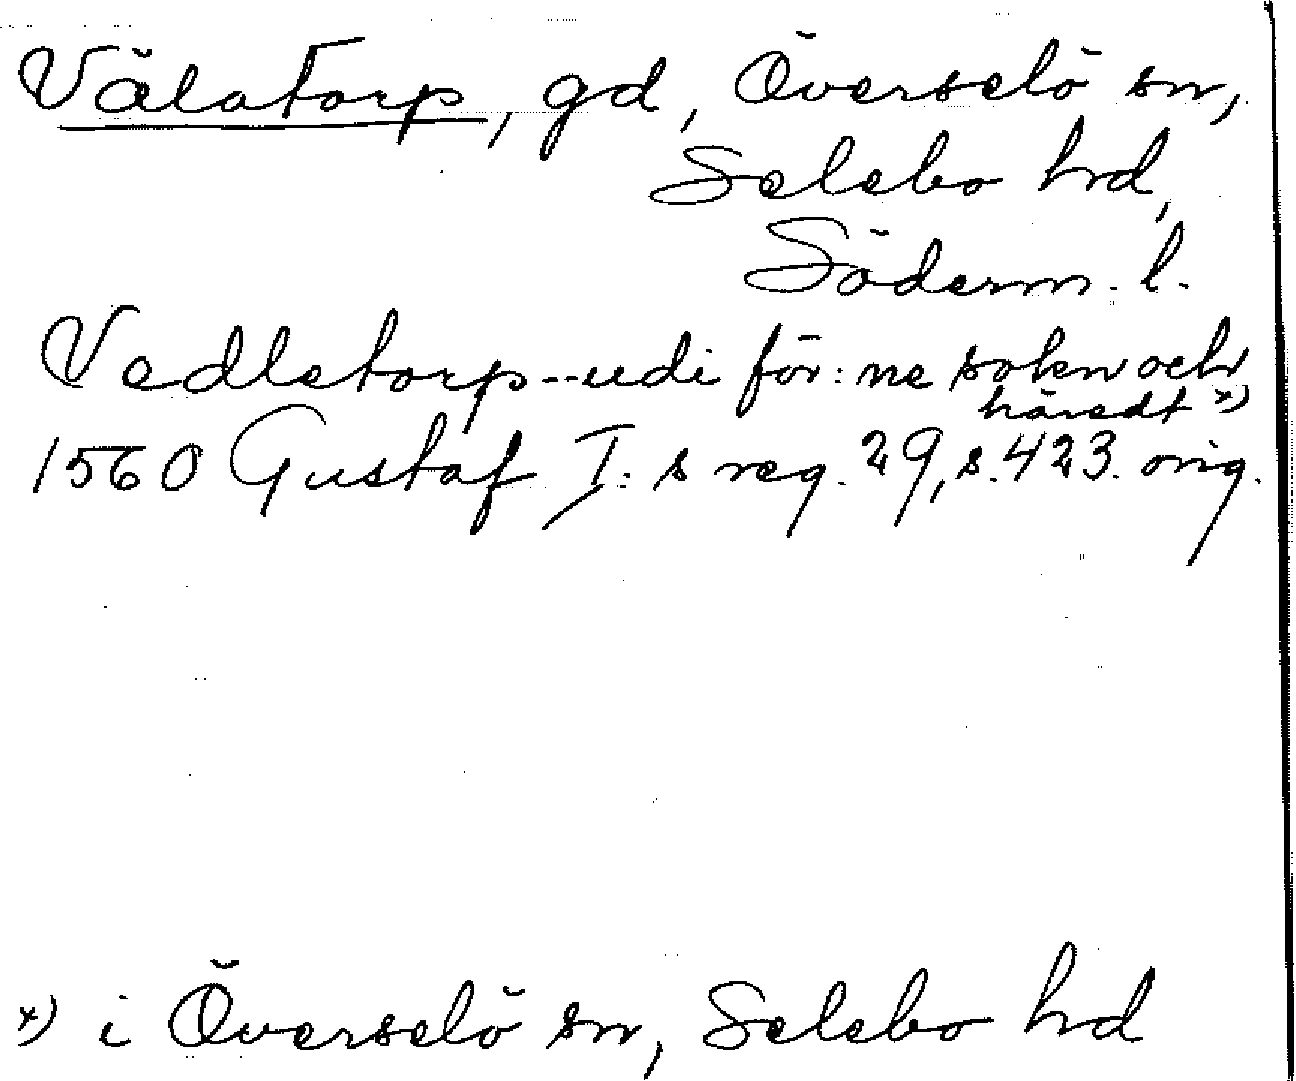 Välatorp, gd, Överselö sn,
Selebo hd,
Söderm. l.
Vedletorp--udi för:ne sokn och
häredt *)
1560 Gustaf I:s reg. 29, s. 423. orig.
*) i Överselö sn, Selebo hd